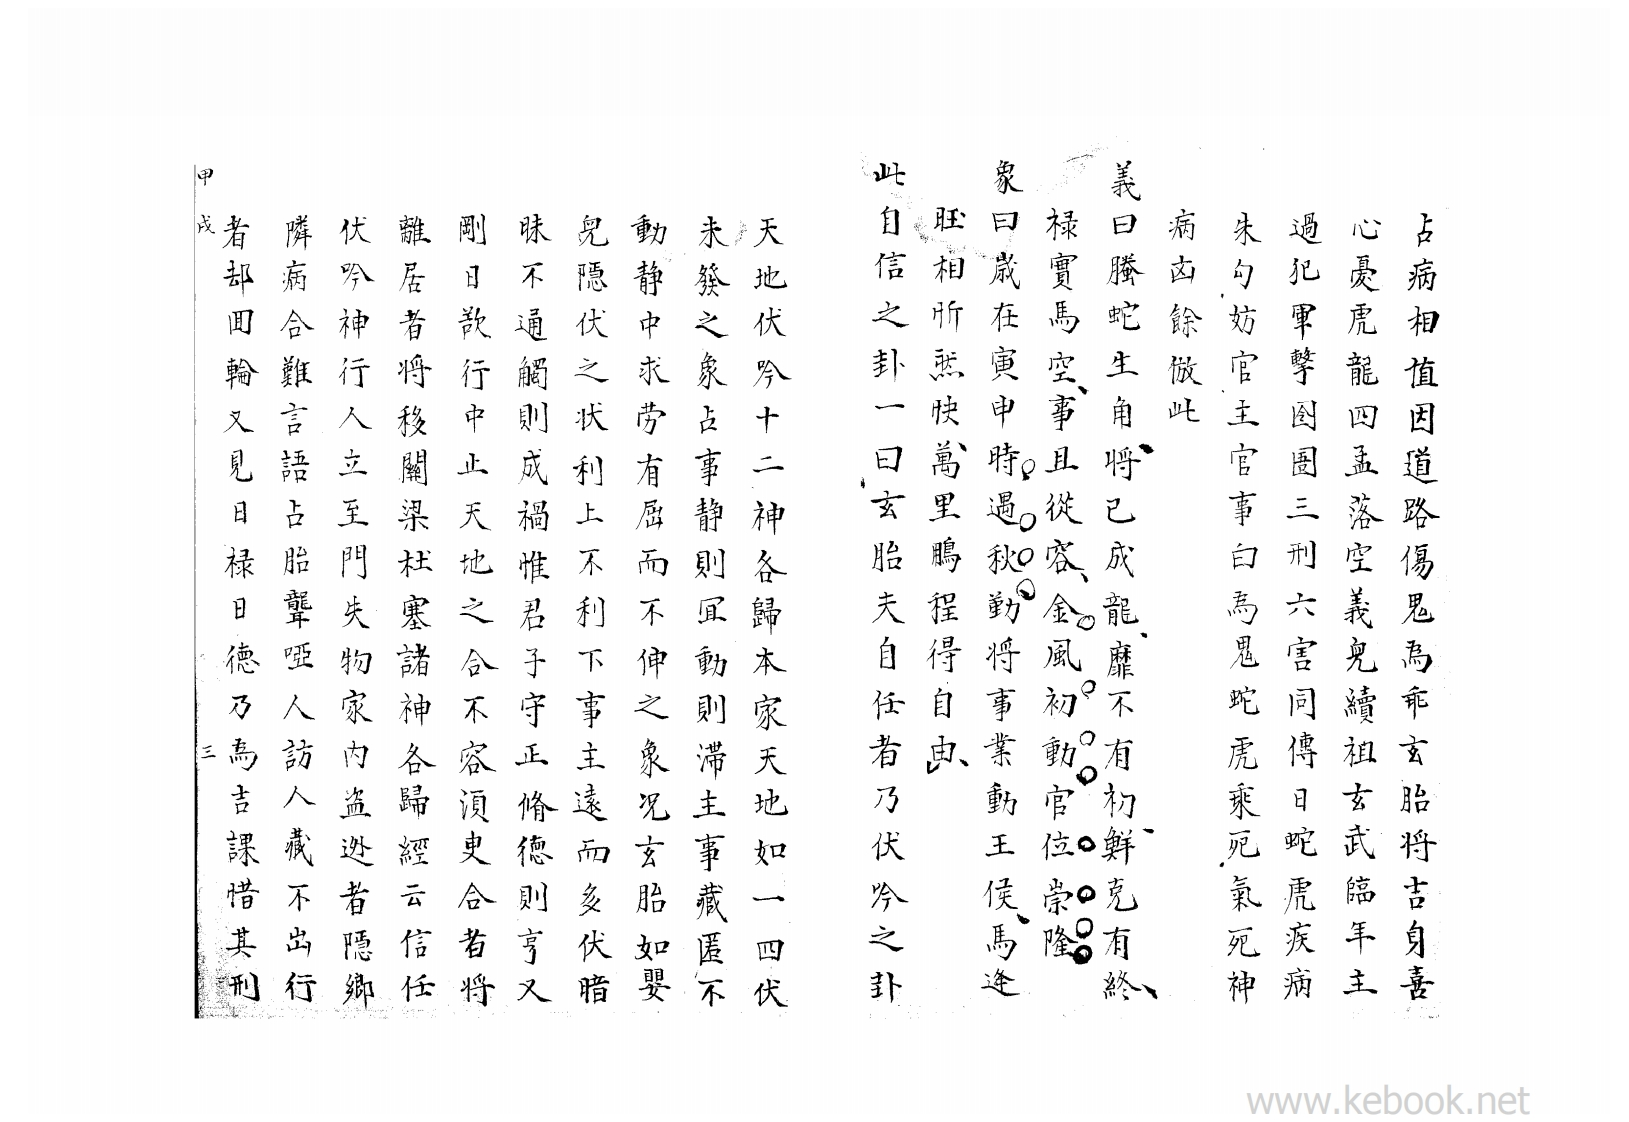 占病相值因道路傷鬼為乖玄胎將吉身喜
心憂虎龍四孟落空義兒續祖玄武臨年主
過犯軍擊囹圄三刑六害同傳日蛇虎疾病
朱勾妨官主官事白為鬼蛇虎乘死氣死神
病凶餘倣此
義曰騰蛇生角將已成龍靡不有初鮮克有終
祿實馬空事且從容金風初動官位崇隆
象曰歲在寅申時過秋勤將事業動王侯馬逢
旺相昕然快萬里鵬程得自由
此自信之卦一曰玄胎夫自任者乃伏吟之卦
天地伏吟十二神各歸本家天地如一四伏
未發之象占事靜則宜動則滯主事藏匿不
動靜中求劳有屈而不伸之象况玄胎如嬰
兒隱伏之狀利上不利下事主遠而多伏暗
昧不通觸則成禍惟君子守正脩德則亨又
剛日欲行中止天地之合不容須臾合者將
離居者將移關梁杜塞諸神各歸經云信任
伏吟神行人立至門失物家內盜逃者隱鄉
隣病合難言語占胎聾啞人訪人藏不出行
者却回輪又見日祿日德乃為吉課惜其刑
甲戌 三
www.kebook.net